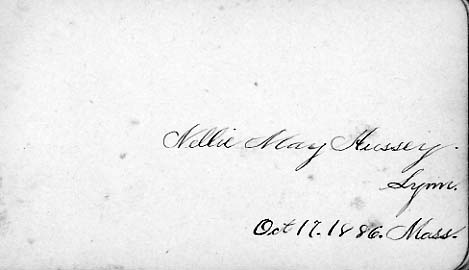 Nellie May Hussey.
Lynn.
Oct 17. 1886. Mass.